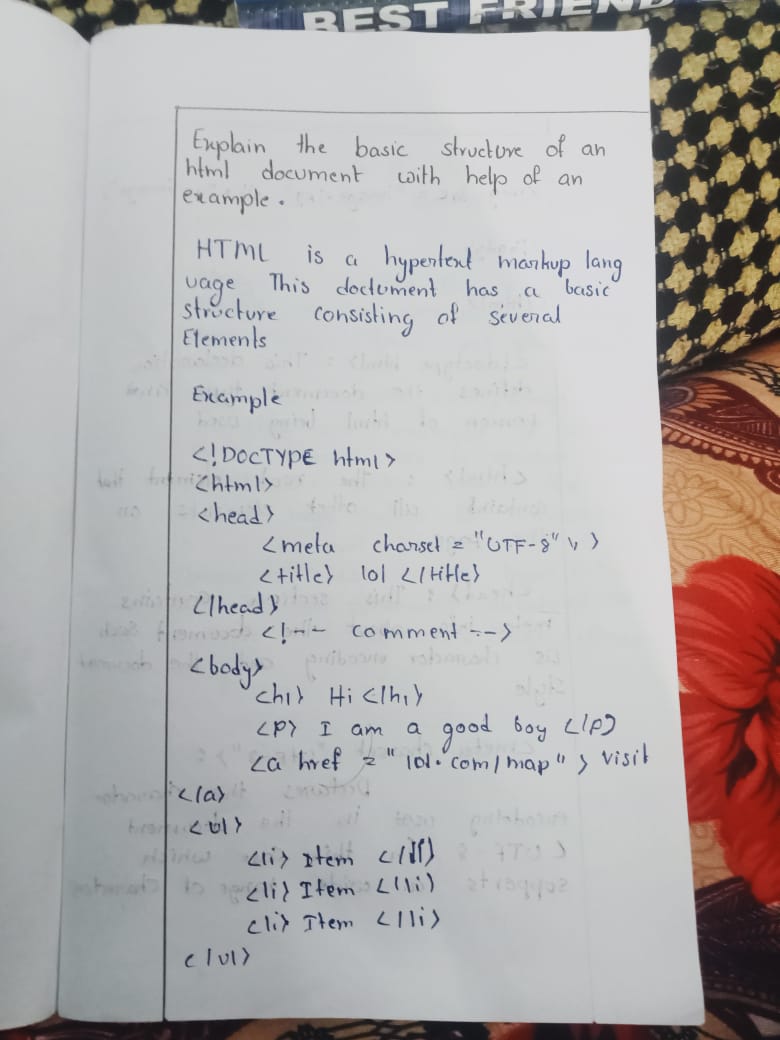 BEST FRIEND
Explain the basic structure of an
html document with help of an
example.
HTML is a hypertext markup lang
uage This doctument has a basic
structure consisting of several
Elements
Example
<!DOCTYPE html>
<html>
<head>
<meta charset = "UTF-8" \>
<title> lol </title>
</head>
<!-- comment -->
<body>
<h1> Hi </h1>
<p> I am a good boy </p>
<a href = "lol.com/map" > visit
</a>
<ul>
<li> Item </li>
<li> Item </li>
<li> Item </li>
</ul>